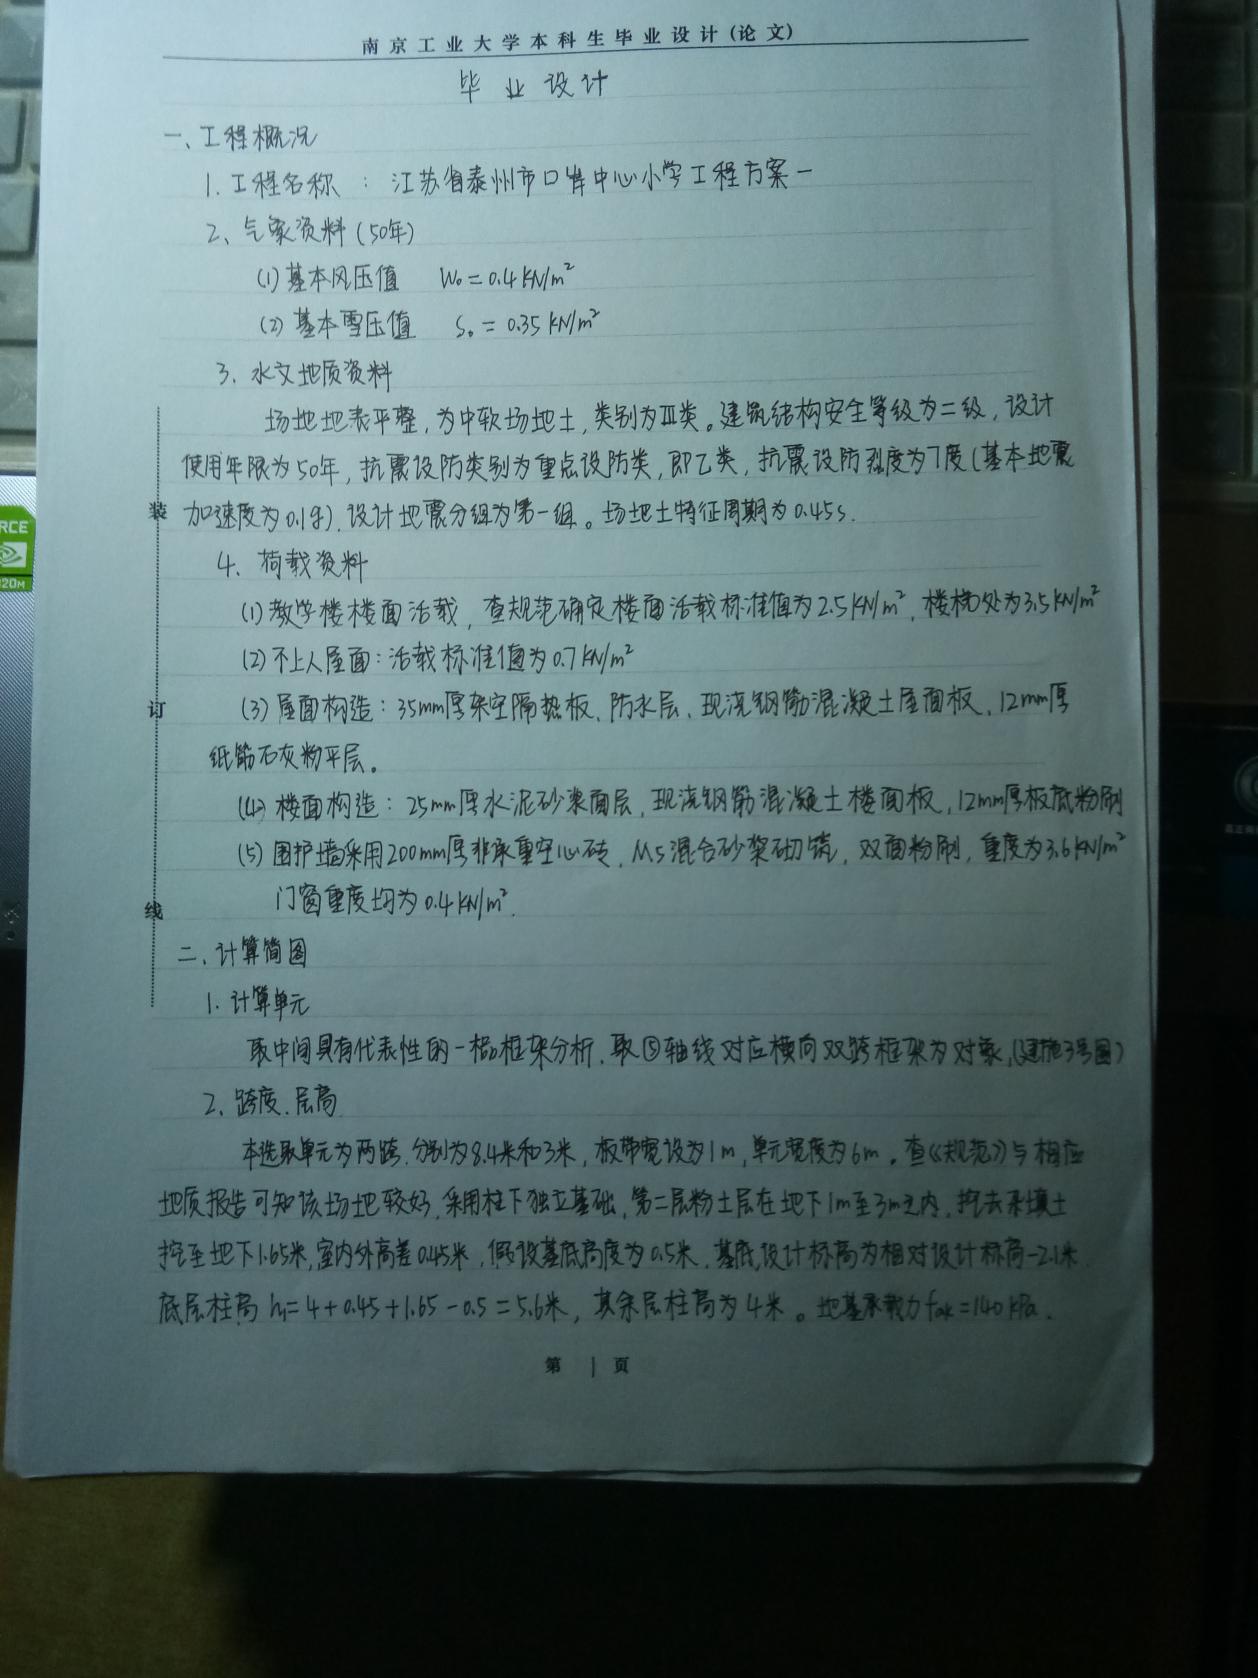 南京工业大学本科生毕业设计(论文)
毕业设计
一、工程概况
1.工程名称：江苏省泰州市口岸中心小学工程方案一
2、气象资料(50年)
(1)基本风压值 W₀=0.4KN/m²
(2)基本雪压值 S₀=0.35KN/m²
3.水文地质资料
场地地表平整,为中软场地土,类别为Ⅲ类。建筑结构安全等级为二级,设计
使用年限为50年,抗震设防类别为重点设防类,即乙类,抗震设防烈度为7度(基本地震
加速度为0.1g).设计地震分组为第一组。场地土特征周期为0.45s.
4.荷载资料
(1)教学楼楼面活载,查规范确定楼面活载标准值为2.5KN/m²,楼梯处为3.5KN/m²
(2)不上人屋面:活载标准值为0.7KN/m²
(3)屋面构造:35mm厚架空隔热板、防水层、现浇钢筋混凝土屋面板、12mm厚
纸筋石灰粉平层。
(4)楼面构造:25mm厚水泥砂浆面层,现浇钢筋混凝土楼面板,12mm厚板底粉刷
(5)围护墙采用200mm厚非承重空心砖,M5混合砂浆砌筑,双面粉刷,重度为3.6KN/m²
门窗重度均为0.4KN/m².
二、计算简图
1.计算单元
取中间具有代表性的一榀框架分析.取⑤轴线对应横向双跨框架为对象,(建施3号图)
2、跨度.层高
本选取单元为两跨.分别为8.4米和3米,板带宽设为1m,单元宽度为6m。查《规范》与相应
地质报告可知该场地较好.采用柱下独立基础,第二层粉土层在地下1m至3m之内.挖去杂填土
挖至地下1.65米,室内外高差0.45米,假设基底高度为0.5米.基底设计标高为相对设计标高-2.1米.
底层柱高h₁=4+0.45+1.65-0.5=5.6米,其余层柱高为4米。地基承载力fak=140kPa.
第1页
装
订
线